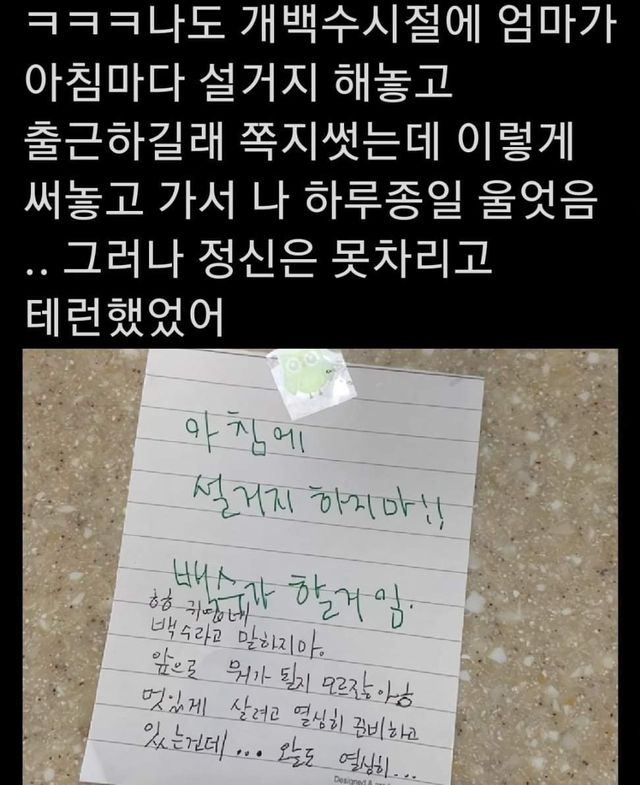 ㅋㅋㅋ나도 개백수시절에 엄마가
아침마다 설거지 해놓고
출근하길래 쪽지썻는데 이렇게
써놓고 가서 나 하루종일 울엇음
.. 그러나 정신은 못차리고
테런했었어
아침에
설거지 하지마!!
백수가 할거임.
ㅎㅎ 귀엽네
백수라고 말하지마.
앞으로 뭐가 될지 모르잖아ㅎ
멋있게 살려고 열심히 준비하고
있는건데... 오늘도 열심히...
Designed &